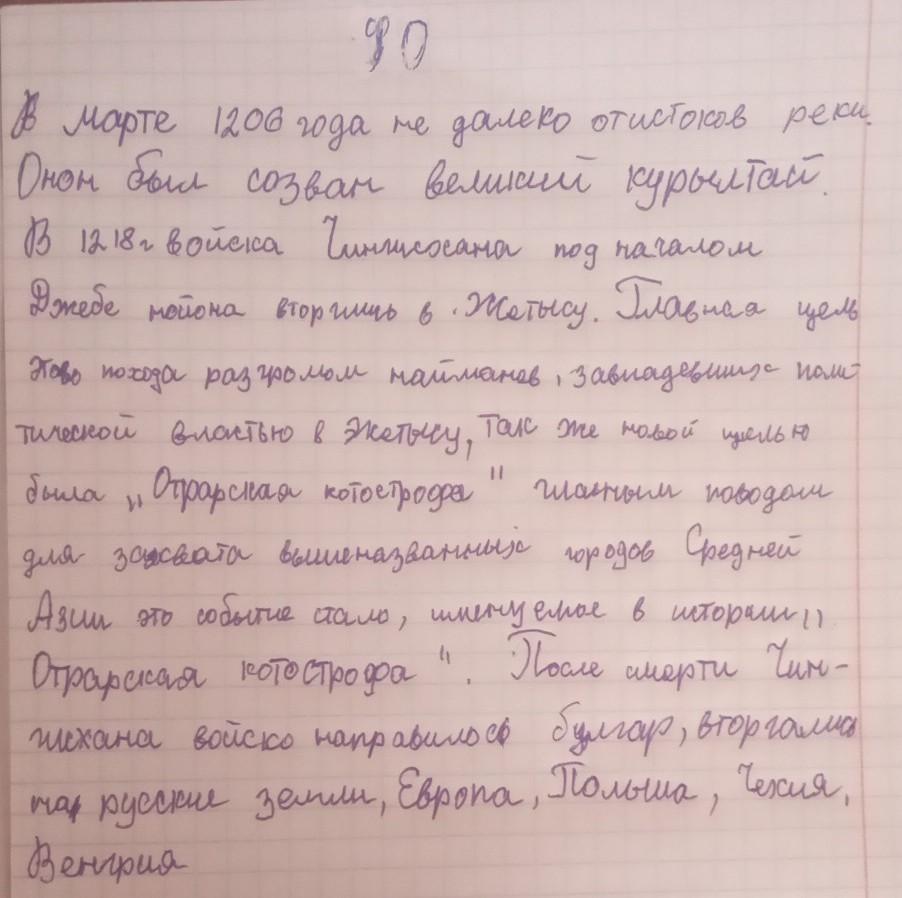 ФО
В марте 1206 года не далеко отистоков реки.
Онон был созван великий курылтай.
В 1218г войска Чингисхана под началом
Джебе нойона вторглись в Жетысу. Главная цель
этово похода разгромом найманов, завладевших поли-
тической властью в Жетысу, так же новой целью
была „Отрарская котострофа" главным поводом
для захвата вышеназванных городов Средней
Азии это событие стало, именуемое в истории „
Отрарская котострофа". После смерти Чин-
гисхана войско направилось булгар, вторгались
на русские земли, Европа, Польша, Чехия,
Венгрия